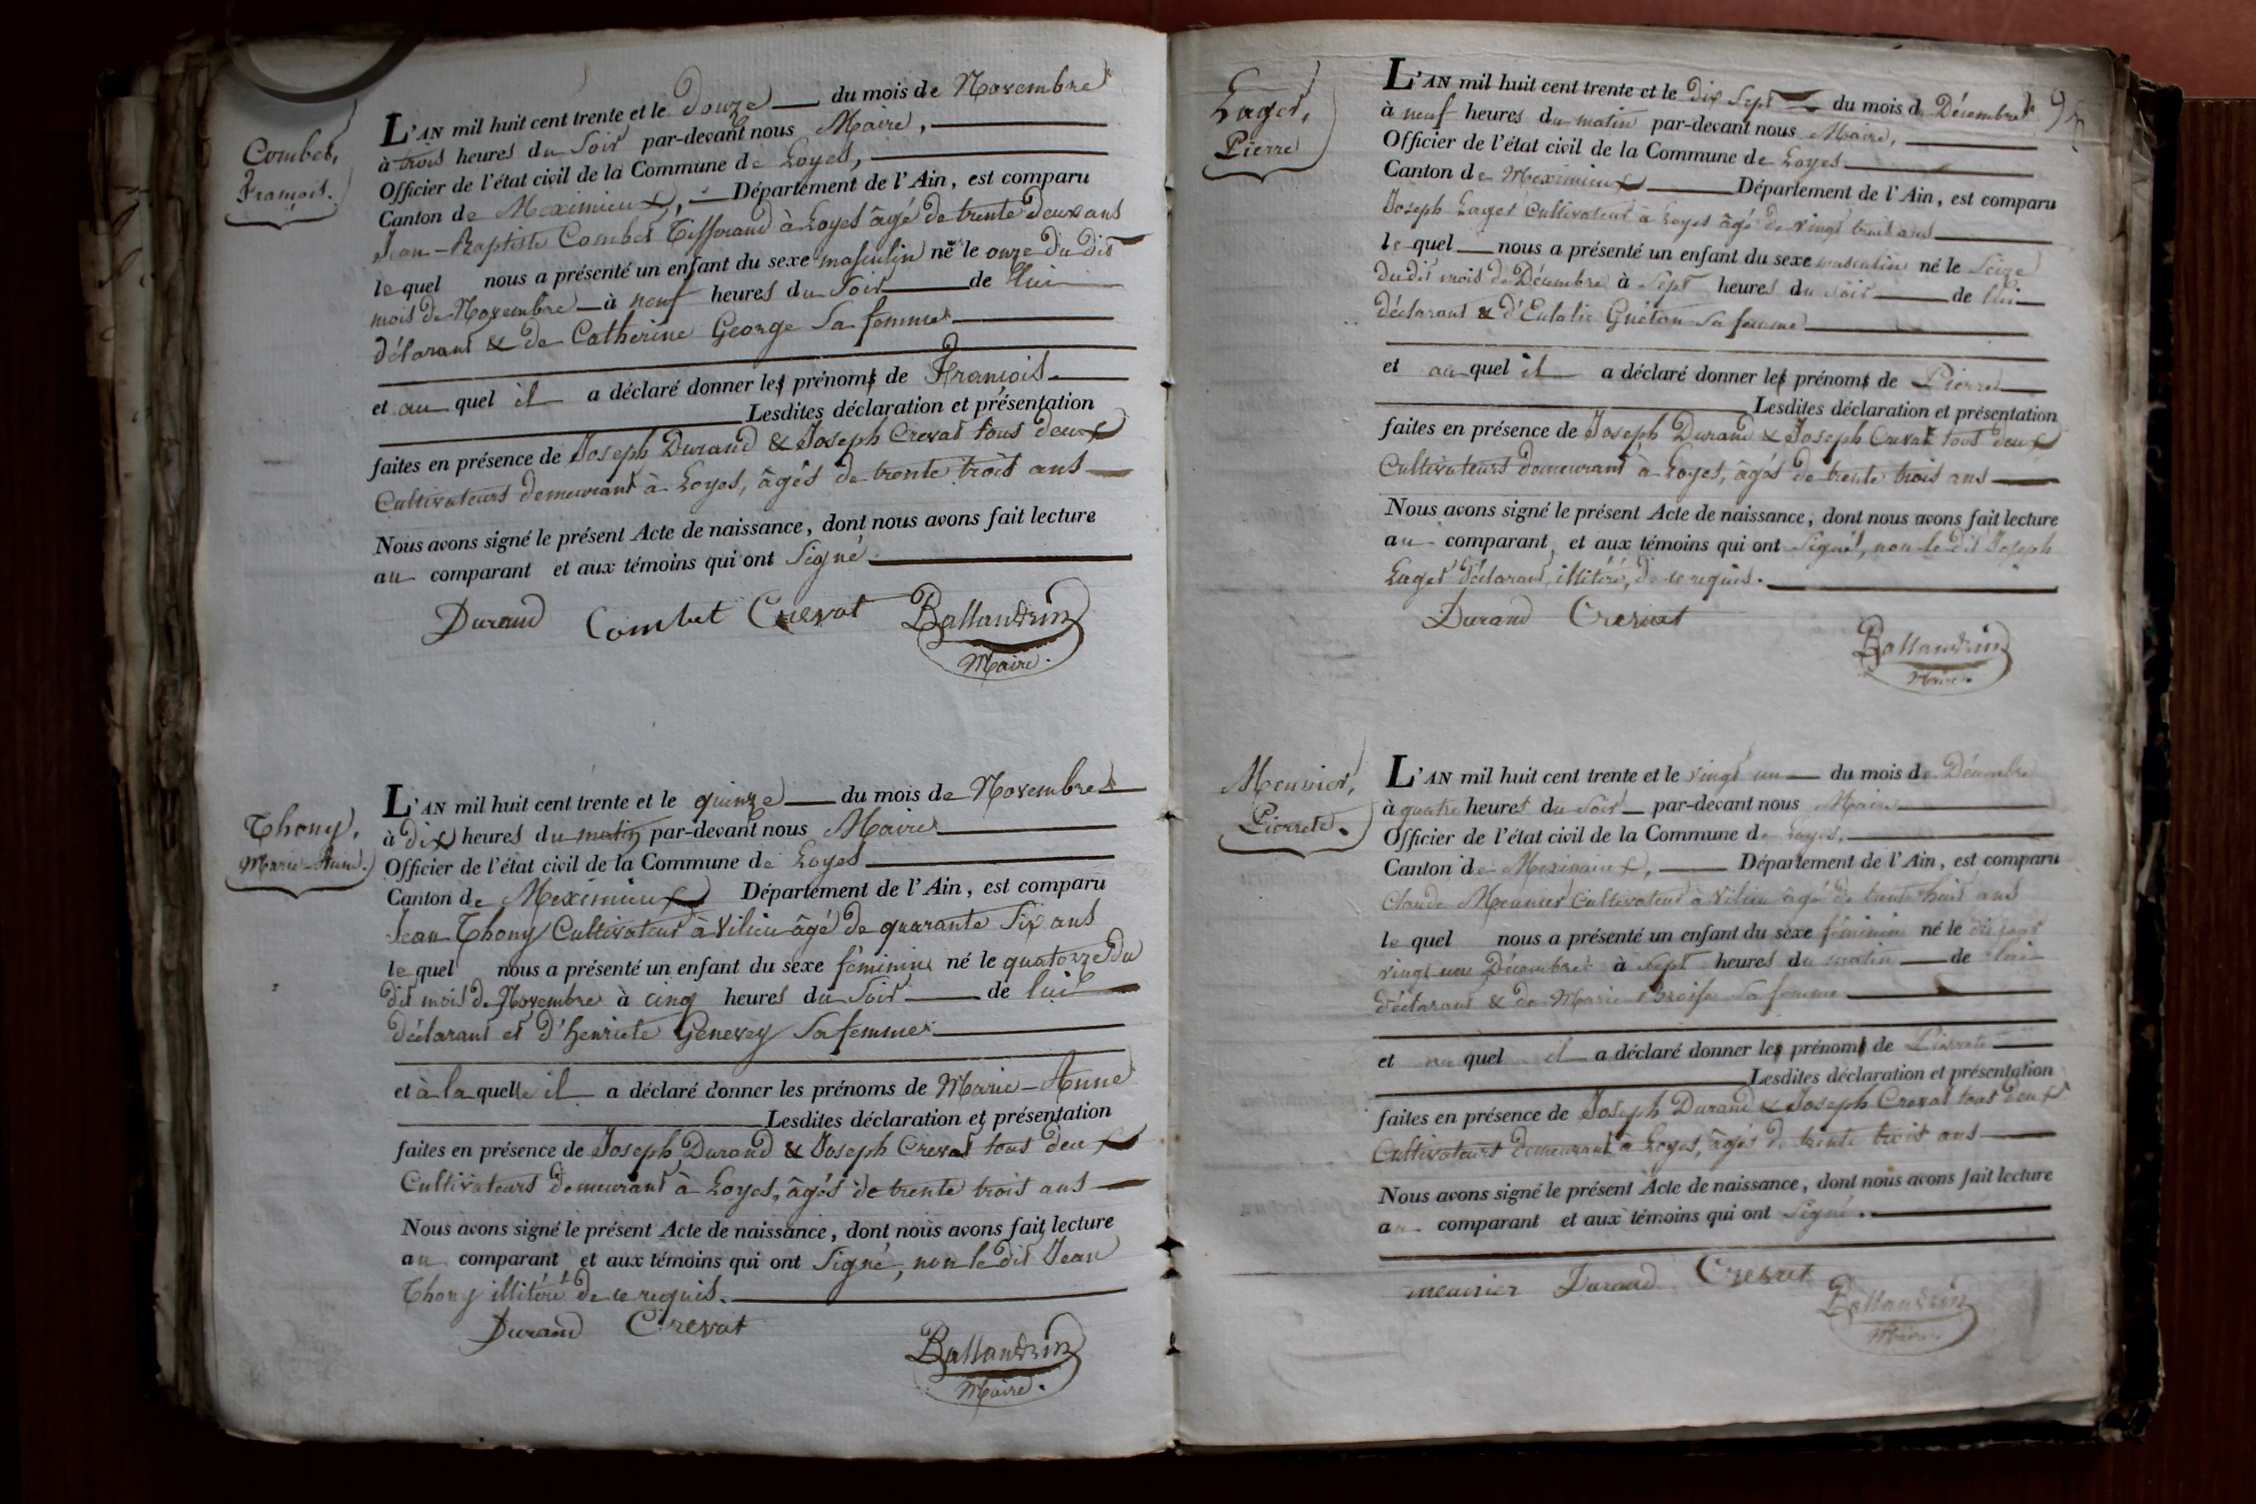 Combet,
François.
L'AN mil huit cent trente et le douze du mois de Novembre
à trois heures du Soir par-devant nous Maire,
Officier de l'état civil de la Commune de Loyes,
Canton de Meximieux, Département de l'Ain, est comparu
Jean-Baptiste Combet Tisserand à Loyes âgé de trente deux ans
le quel nous a présenté un enfant du sexe masculin né le onze du dit
mois de Novembre à neuf heures du Soir de lui
déclarant & de Catherine George Sa femme
et au quel il a déclaré donner les prénoms de François.
Lesdites déclaration et présentation
faites en présence de Joseph Durand & Joseph Crevat tous deux
Cultivateurs demeurant à Loyes, âgés de trente trois ans
Nous avons signé le présent Acte de naissance, dont nous avons fait lecture
au comparant et aux témoins qui ont Signé
Durand Combet Crevat Ballandrin
Maire.
Thony,
Marie-Anne.
L'AN mil huit cent trente et le quinze du mois de Novembre
à dix heures du matin par-devant nous Maire
Officier de l'état civil de la Commune de Loyes
Canton de Meximieux Département de l'Ain, est comparu
Jean Thony Cultivateur à Vilieu âgé de quarante Six ans
le quel nous a présenté un enfant du sexe féminin né le quatorze du
dit mois de Novembre à cinq heures du Soir de lui
déclarant et d'henriete Genevey Sa femme
et à la quelle il a déclaré donner les prénoms de Marie-Anne
Lesdites déclaration et présentation
faites en présence de Joseph Durand & Joseph Crevat tous deux
Cultivateurs demeurant à Loyes, âgés de trente trois ans
Nous avons signé le présent Acte de naissance, dont nous avons fait lecture
au comparant et aux témoins qui ont Signé, non le dit Jean
Thony illitéré de ce requis.
Durand Crevat
Ballandrin
Maire.
Laget,
Pierre
L'AN mil huit cent trente et le dix Sept du mois de Décembre
à neuf heures du matin par-devant nous Maire,
Officier de l'état civil de la Commune de Loyes
Canton de Meximieux Département de l'Ain, est comparu
Joseph Laget Cultivateur à Loyes âgé de vingt huit ans
le quel nous a présenté un enfant du sexe masculin né le Seize
du dit mois de Décembre à Sept heures du soir de lui
déclarant & d'Eulalie Guéton Sa femme
et au quel il a déclaré donner les prénoms de Pierre
Lesdites déclaration et présentation
faites en présence de Joseph Durand & Joseph Crevat tous deux
Cultivateurs demeurant à Loyes, âgés de trente trois ans
Nous avons signé le présent Acte de naissance, dont nous avons fait lecture
au comparant et aux témoins qui ont Signé, non le dit Joseph
Laget déclarant, illitéré, de ce requis.
Durand Crevat
Ballandrin
Maire.
Meunier,
Pierrete.
L'AN mil huit cent trente et le vingt un du mois de Décembre
à quatre heures du Soir par-devant nous Maire
Officier de l'état civil de la Commune de Loyes,
Canton de Meximieux, Département de l'Ain, est comparu
Claude Meunier Cultivateur à Vilieu âgé de trente huit ans
le quel nous a présenté un enfant du sexe féminin né le
vingt un Décembre à Sept heures du matin de lui
déclarant & de Marie Sa femme
et au quel il a déclaré donner les prénoms de Pierrete
Lesdites déclaration et présentation
faites en présence de Joseph Durand & Joseph Crevat tous deux
Cultivateurs demeurant à Loyes, âgés de trente trois ans
Nous avons signé le présent Acte de naissance, dont nous avons fait lecture
au comparant et aux témoins qui ont Signé.
meunier Durand Crevat
Ballandrin
Maire